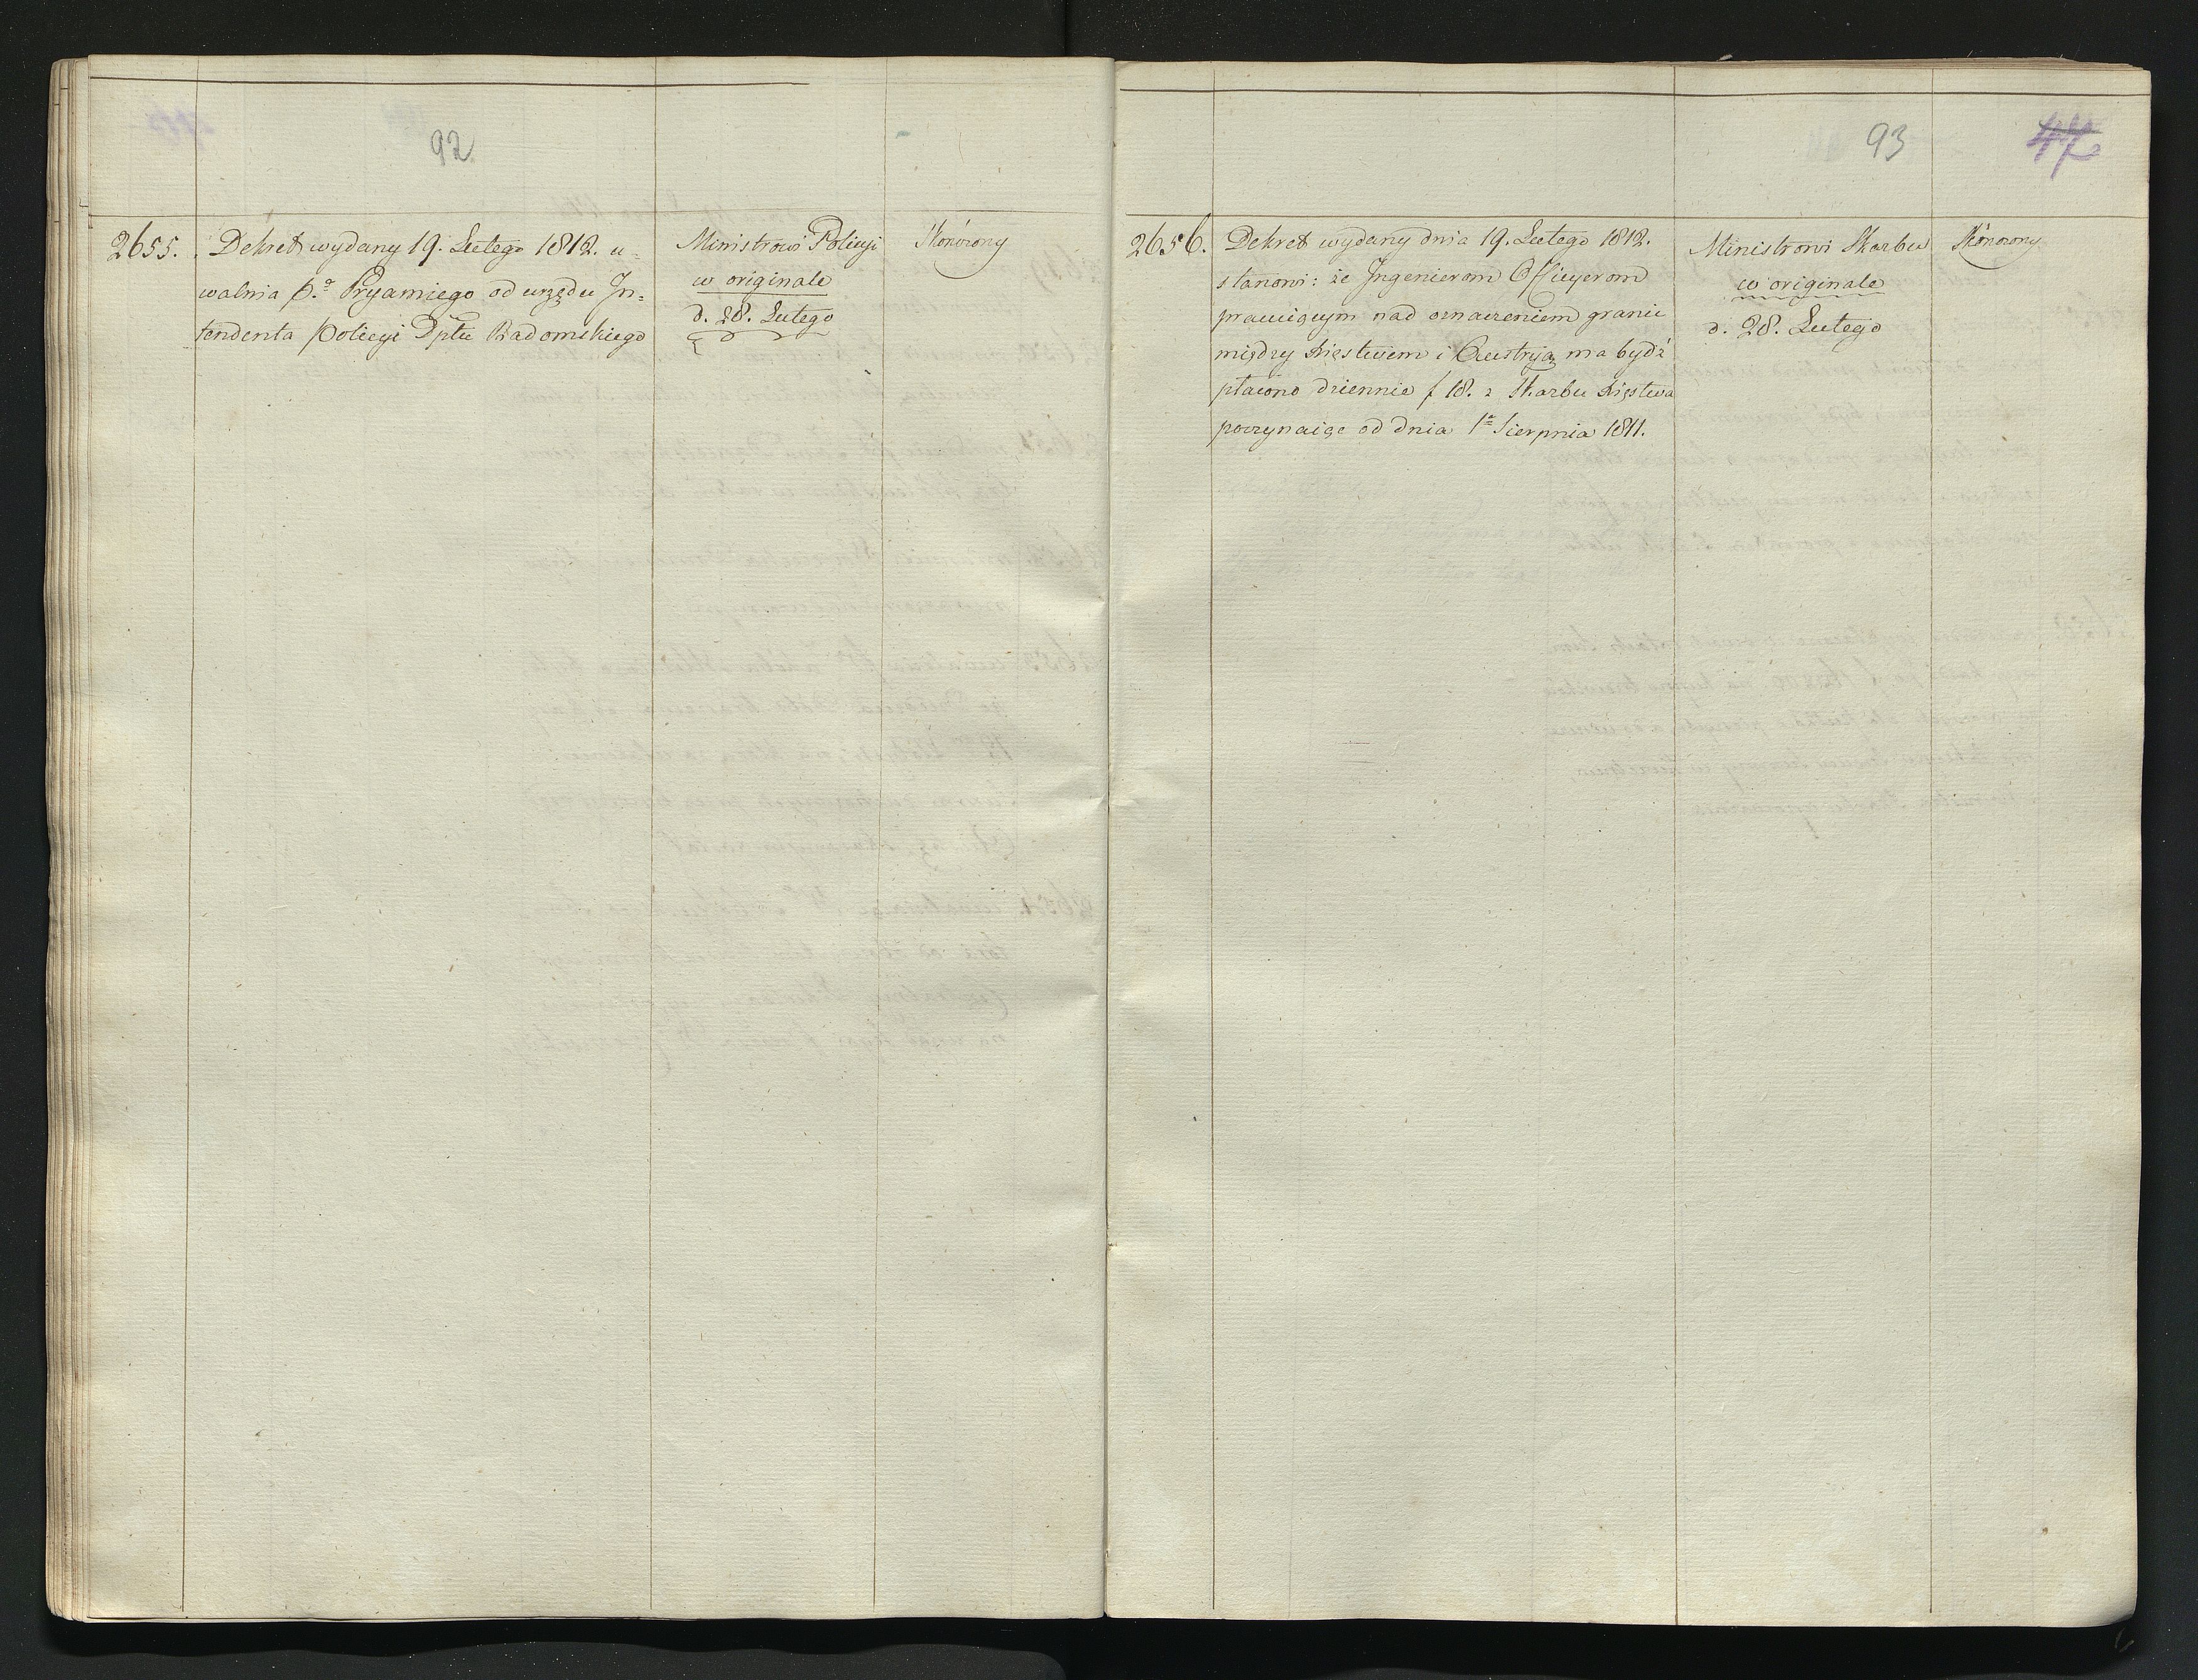 92
2655.
Dekret wydany 19. Lutego 1812. u=
walnia P.ª Pryamiego od urzędu In=
tendenta policyi Dptu Radomskiego
Ministrowi Policyi
w originale
d. 28. Lutego
Skończony
93
47
2656.
Dekret wydany dnia 19. Lutego 1812.
stanowi: że Ingenierom Officyerom
pracuiącym nad oznaczeniem granic
między Xięstwem i Austryą ma bydź
płacono dziennie f 18. z Skarbu Xięstwa
poczynaiąc od dnia 1ª Sierpnia 1811.
Ministrowi Skarbu
w originale
d. 28. Lutego
Skończony